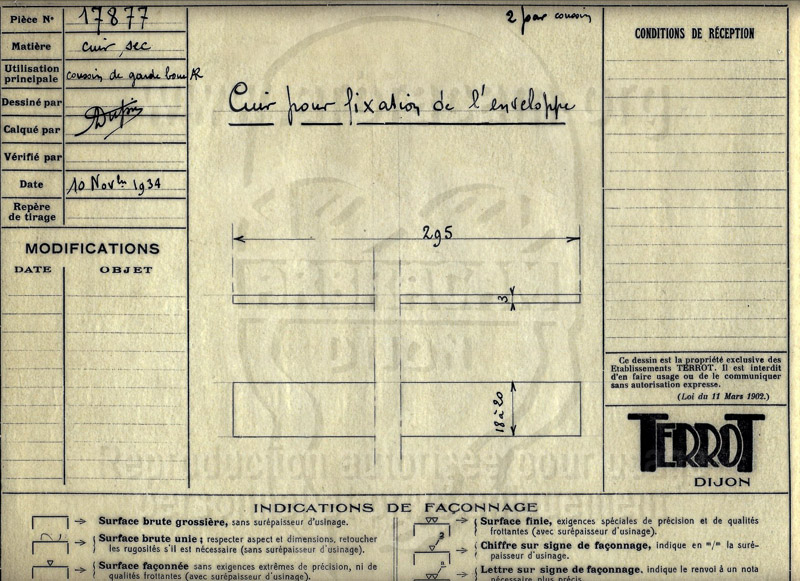 Pièce No 17877
Matière cuir, sec
Utilisation principale coussin de garde boue AR
Dessiné par
Calqué par
Vérifié par
Date 10 Novbre 1934
Repère de tirage
MODIFICATIONS
DATE OBJET
2 par coussin
Cuir pour fixation de l'enveloppe
295
3
18 à 20
CONDITIONS DE RÉCEPTION
Ce dessin est la propriété exclusive des
Etablissements TERROT. Il est interdit
d'en faire usage ou de le communiquer
sans autorisation expresse.
(Loi du 11 Mars 1902.)
TERROT
DIJON
INDICATIONS DE FAÇONNAGE
Surface brute grossière, sans surépaisseur d'usinage.
Surface brute unie ; respecter aspect et dimensions, retoucher
les rugosités s'il est nécessaire (sans surépaisseur d'usinage).
Surface façonnée sans exigences extrêmes de précision, ni de
qualités frottantes (avec surépaisseur d'usinage).
Surface finie, exigences spéciales de précision et de qualités
frottantes (avec surépaisseur d'usinage).
Chiffre sur signe de façonnage, indique en m/m la suré-
paisseur d'usinage.
Lettre sur signe de façonnage, indique le renvoi à un nota
nécessaire plus précis.
DIJON
Reproduction autorisée pour